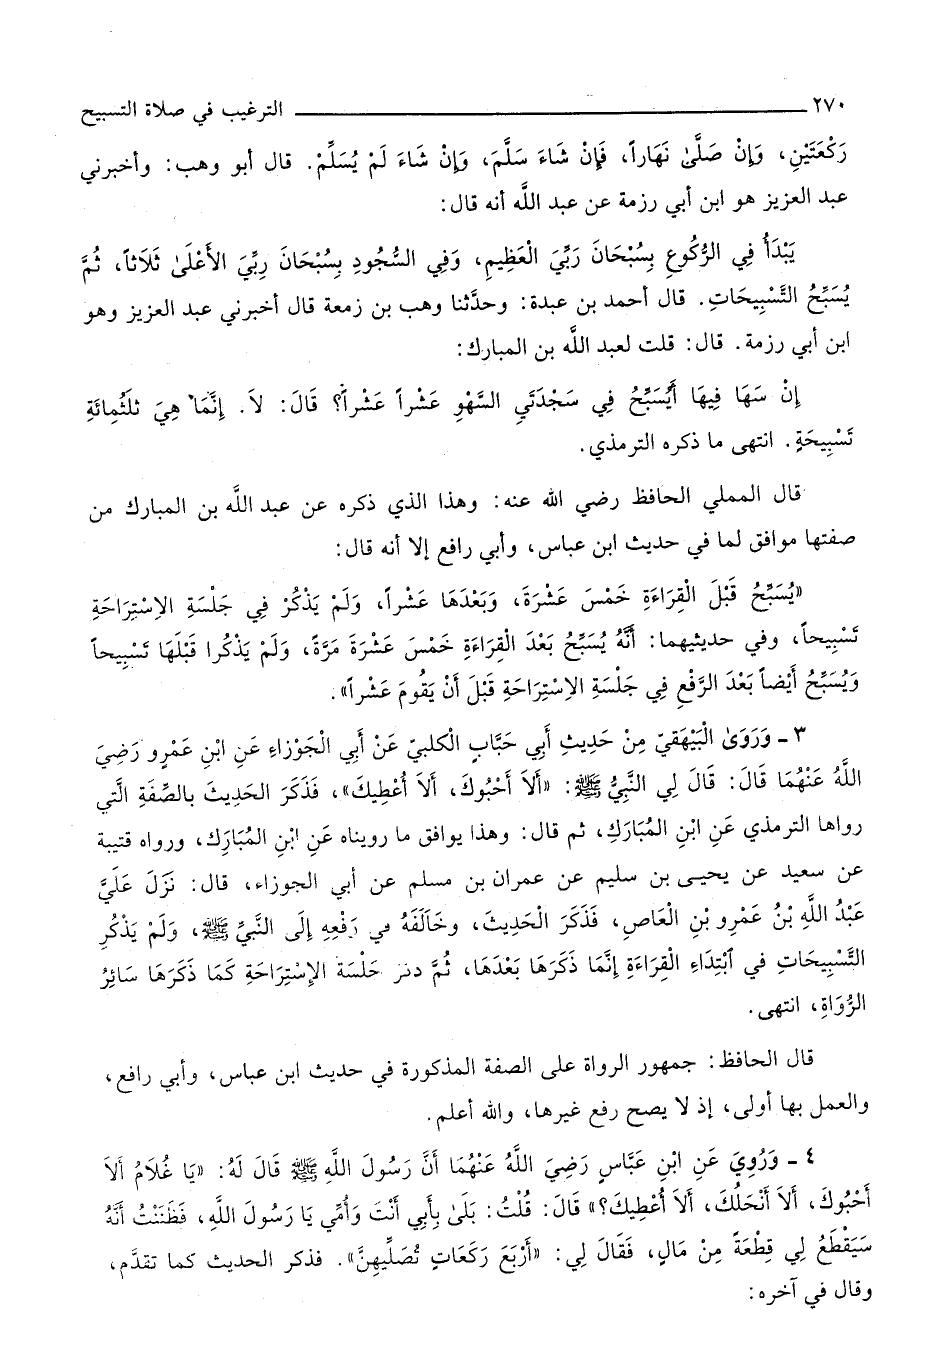 ٢٧٠ ــــــــ الترغيب في صلاة التسبيح
رَكْعَتَيْنِ، وَإِنْ صَلَّىٰ نَهَاراً، فَإِنْ شَاءَ سَلَّمَ، وَإِنْ شَاءَ لَمْ يُسَلِّمْ. قال أبو وهب: وأخبرني
عبد العزيز هو ابن أبي رزمة عن عبد اللَّه أنه قال:
يَبْدَأُ فِي الرُّكُوعِ بِسُبْحَانَ رَبِّيَ الْعَظِيمِ، وَفِي السُّجُودِ بِسُبْحَانَ رَبِّيَ الأَعْلَىٰ ثَلَاثاً، ثُمَّ
يُسَبِّحُ التَّسْبِيحَاتِ. قال أحمد بن عبدة: وحدَّثنا وهب بن زمعة قال أخبرني عبد العزيز وهو
ابن أبي رزمة. قال: قلت لعبد اللَّه بن المبارك:
إِنْ سَهَا فِيهَا أَيُسَبِّحُ فِي سَجْدَتَيِ السَّهْوِ عَشْراً عَشْراً؟ قَالَ: لاَ. إِنَّمَا هِيَ ثَلْثُمِائَةِ
تَسْبِيحَةٍ. انتهى ما ذكره الترمذي.
قال المملي الحافظ رضي الله عنه: وهذا الذي ذكره عن عبد اللَّه بن المبارك من
صفتها موافق لما في حديث ابن عباس، وأبي رافع إلا أنه قال:
«يُسَبِّحُ قَبْلَ الْقِرَاءَةِ خَمْسَ عَشْرَةَ، وَبَعْدَهَا عَشْراً، وَلَمْ يَذْكُرْ فِي جَلْسَةِ الاِسْتِرَاحَةِ
تَسْبِيحاً، وفي حديثيهما: أَنَّهُ يُسَبِّحُ بَعْدَ الْقِرَاءَةِ خَمْسَ عَشْرَةَ مَرَّةً، وَلَمْ يَذْكُرا قَبْلَهَا تَسْبِيحاً
وَيُسَبِّحُ أَيْضاً بَعْدَ الرَّفْعِ فِي جَلْسَةِ الاِسْتِرَاحَةِ قَبْلَ أَنْ يَقُومَ عَشْراً».
٣ ـ وَرَوَىٰ الْبَيْهَقيّ مِنْ حَدِيثِ أَبِي حَبَّابٍ الْكلبيّ عَنْ أَبِي الْجَوْزاء عَنِ ابْنِ عَمْرٍو رَضِيَ
اللَّهُ عَنْهُمَا قَالَ: قَالَ لِي النَّبِيُّ ﷺ: «أَلاَ أَحْبُوكَ، أَلاَ أُعْطِيكَ»، فَذَكَرَ الْحَدِيثَ بالصِّفَةِ الَّتي
رواها الترمذي عَنِ ابْنِ الْمُبَارَكِ، ثم قال: وهذا يوافق ما رويناه عَنِ ابْنِ الْمُبَارَكِ، ورواه قتيبة
عن سعيد عن يحيى بن سليم عن عمران بن مسلم عن أبي الجوزاء، قال: نَزَلَ عَلَيَّ
عَبْدُ اللَّهِ بْنُ عَمْرِو بْنِ الْعَاصِ، فَذَكَرَ الْحَدِيثَ، وخَالَفَهُ في رَفْعِهِ إِلَى النَّبِيِّ ﷺ، وَلَمْ يَذْكُرِ
التَّسْبِيحَاتِ في ٱبْتِدَاءِ الْقِرَاءَةِ إِنَّمَا ذَكَرَهَا بَعْدَهَا، ثُمَّ ذكر جَلْسَةَ الإِسْتِرَاحَةِ كَمَا ذَكَرَهَا سَائِرُ
الرُّوَاةِ، انتهى.
قال الحافظ: جمهور الرواة على الصفة المذكورة في حديث ابن عباس، وأبي رافع،
والعمل بها أولى، إذ لا يصح رفع غيرها، والله أعلم.
٤ ـ وَرُوِيَ عَنِ ابْنِ عَبَّاسٍ رَضِيَ اللَّهُ عَنْهُمَا أَنَّ رَسُولَ اللَّهِ ﷺ قَالَ لَهُ: «يَا غُلاَمُ أَلاَ
أَحْبُوكَ، أَلاَ أَنْحَلُكَ، أَلاَ أُعْطِيكَ؟» قَالَ: قُلْتُ: بَلَىٰ بِأَبِي أَنْتَ وَأُمِّي يَا رَسُولَ اللَّهِ، فَظَنَنْتُ أَنَّهُ
سَيَقْطَعُ لِي قِطْعَةً مِنْ مَالٍ، فَقَالَ لِي: «أَرْبَعَ رَكَعَاتٍ تُصَلِّيهِنَّ». فذكر الحديث كما تقدَّم،
وقال في آخره: